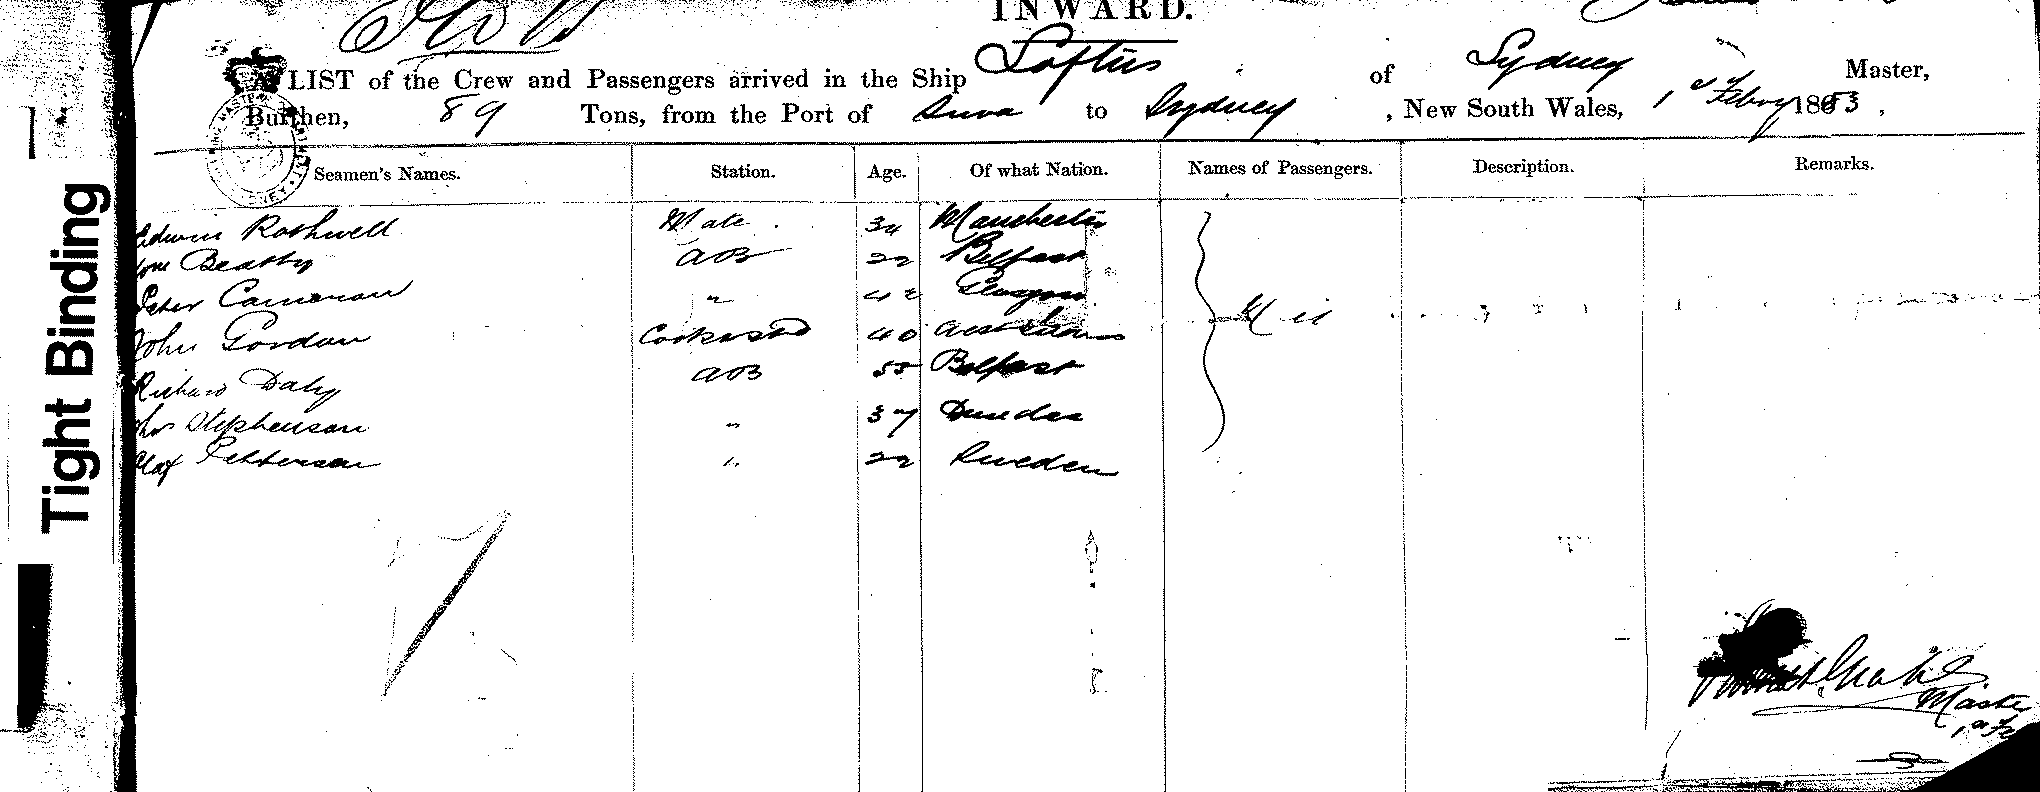 INWARD.
A LIST of the Crew and Passengers arrived in the Ship Loftus of Sydney Master,
Burthen, 89 Tons, from the Port of Suva to Sydney, New South Wales, 1st Febry 1883.
Seamen's Names. Station. Age. Of what Nation. Names of Passengers. Description. Remarks.
Edwin Rothwell Mate 34 Manchester
Beatty AB 22 Belfast
Peter Cameron " 42 Glasgow
John Gordon Cook & Std 40
Nil
Richard Daly AB 55 Belfast
Stephenson " 37 Dundee
Olaf Petterson " 22 Sweden
Master
Tight Binding